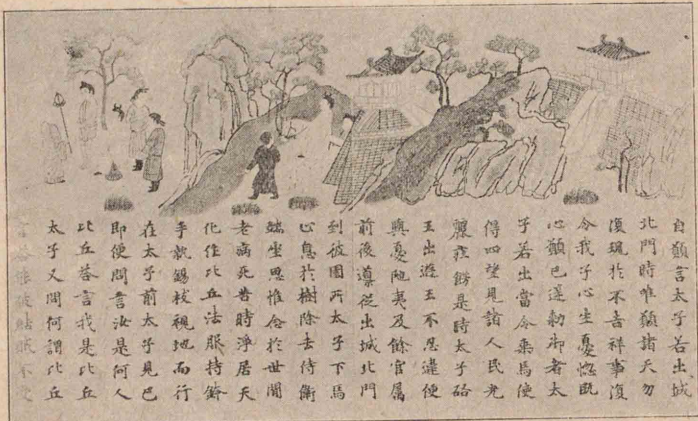 自願言太子若出城
北門時唯願諸天勿
復現於不吉祥事復
令我子心生憂惱既
心願已遂勅御者太
子若出當令乗馬使
得四望見諸人民光
麗莊飾是時太子啓
王出遊王不忍違便
與憂陁夷及餘官属
前後導從出城北門
到彼園所太子下馬
止息於樹除去侍衛
端坐思惟念於世間
老病死苦時淨居天
化作比丘法服持鉢
手執錫杖視地而行
在太子前太子見已
即便問言汝是何人
比丘荅言我是比丘
太子又問何謂比丘
破結賊不受